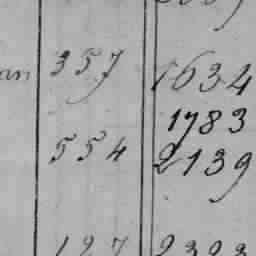 an 357 1634
1783
554 2139